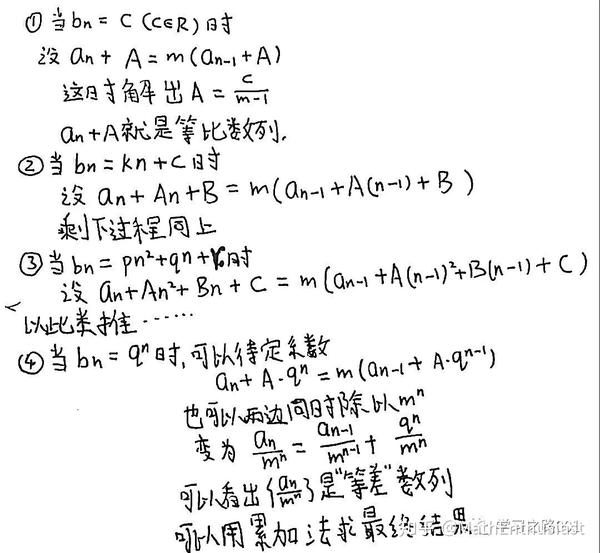 ① 当 bn = C (C∈R) 时
设 an + A = m(an-1 + A)
这时解出 A = c/(m-1)
an+A就是等比数列.
② 当 bn = kn + C 时
设 an + An + B = m(an-1 + A(n-1) + B)
剩下过程同上
③ 当 bn = pn²+qn+r时
设 an+An²+Bn+C = m(an-1+A(n-1)²+B(n-1)+C)
以此类推……
④ 当 bn = qⁿ 时,可以待定系数
an + A·qⁿ = m(an-1 + A·qⁿ⁻¹)
也可以两边同时除以mⁿ
变为 an/mⁿ = an-1/mⁿ⁻¹ + qⁿ/mⁿ
可以看出{an/mⁿ}是"等差"数列
可以用累加法求最终结果
知乎